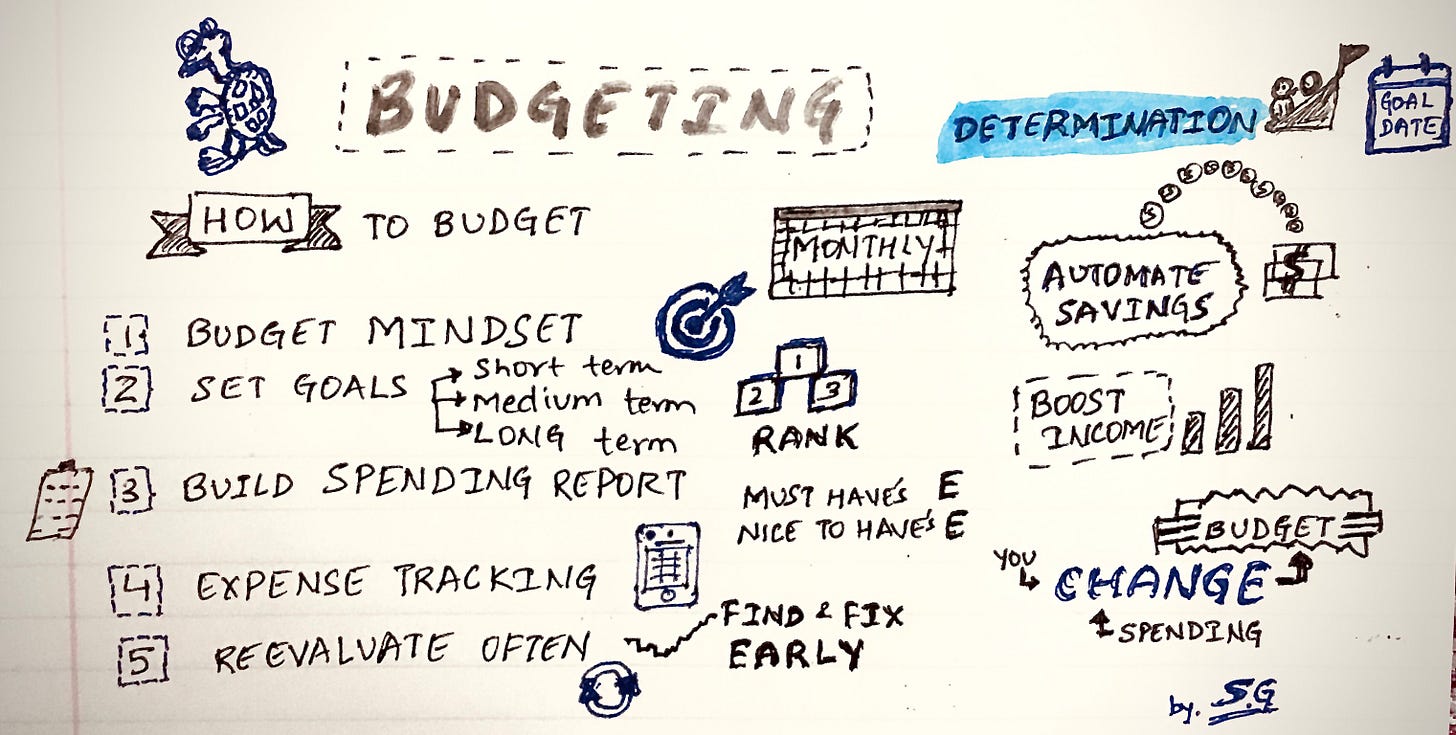 BUDGETING
DETERMINATION
GOAL
DATE
HOW TO BUDGET
MONTHLY
AUTOMATE
SAVINGS
$
1 BUDGET MINDSET
2 SET GOALS
Short term
Medium term
LONG term
1
2 3
RANK
BOOST
INCOME
3 BUILD SPENDING REPORT
MUST HAVE'S E
NICE TO HAVE'S E
BUDGET
YOU
CHANGE
SPENDING
4 EXPENSE TRACKING
5 REEVALUATE OFTEN
FIND & FIX
EARLY
by. S.G